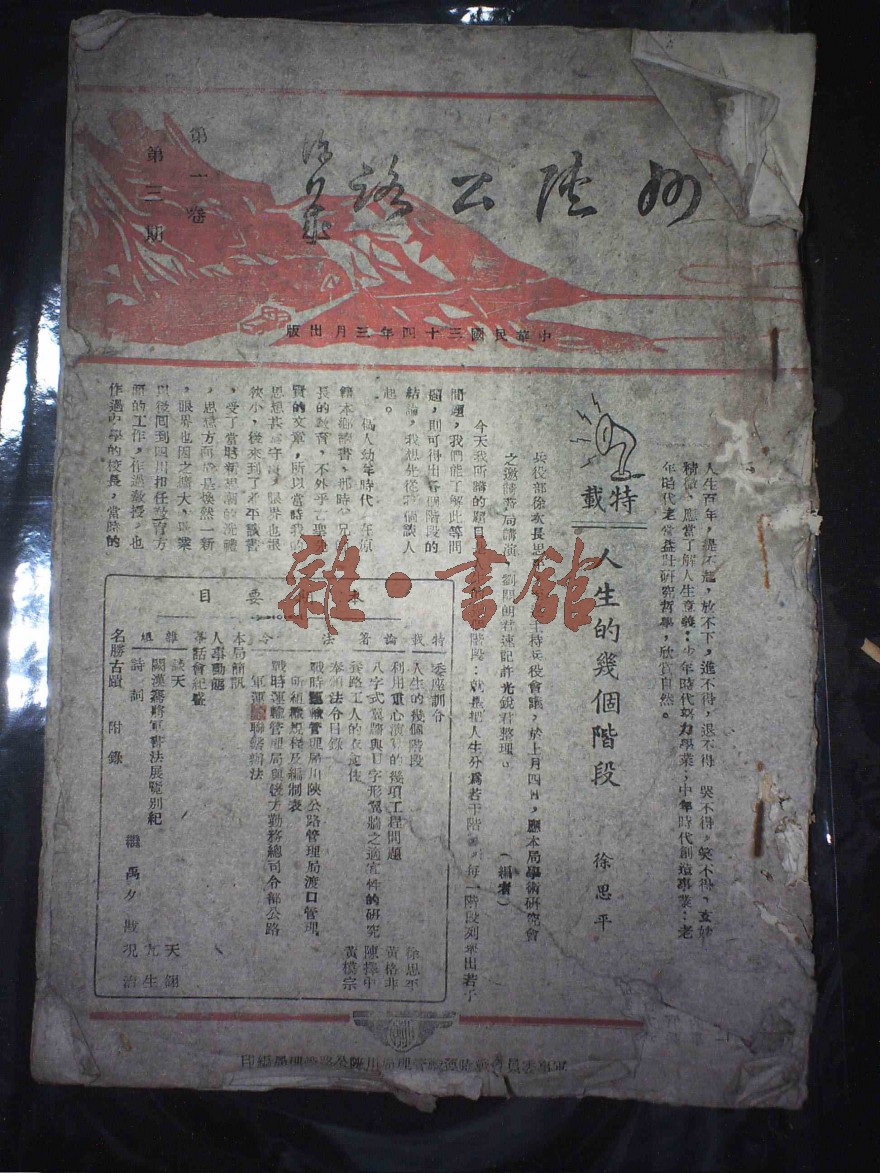 川陝公路
第一卷
第三期
中華民國三十四年三月出版
人生百年,提不起,放不下,進不得,退不得,哭不得,笑不得,玄妙
精微,應當了解人生意義:少年時代努力學業;中年時代創造事業;老
年時代老當益壯研究哲學,欣賞自然。
特載
人生的幾個階段
徐思平
兵役部徐次長思平
主持兵役會議,於上月四日,應本局學術研究會
之邀請蒞局講演,劉開朗君速記許光銳君整理。
(編者)
今天我所講的題目是
階段:就是把人生分爲若干階
每一階段列舉出若干
問題,我們能了解此等問
題,則可得出各個階段的
結論,我想先從
個談人
起。
個人幼年時代,在原
籍本鄉讀書,那時父兄師
長的教育,不外乎
聖
賢的文章,所以當時我的
思想甚
守
,眼界也很
狹小,後來到了北平讀書
,受了當時新思潮的洗禮
,思想方面於是煥然一新
,眼界也因之擴大,畢業
以後回到四川担任教育方
面的工作,作過教授,也
作過中學的校長,當時的
本期要目
特載
論著
法令
委座訓令
人生的幾個階段 徐思平
利用重心演算的幾項工程問題 黃格非
八字式翼牆與U字形翼牆之適宜性的研究 陳擇中
養路工人的衣食住 黃模宗
奉頒法令目錄
戰時運輸管理局川陝公路管理局渡口管理
所組織規程及編制表
戰時運輸管理局與後方勤務總司令部公路
軍運
聯繫辦法
本局簡訊
人事動態
茶話會紀盛
雜俎
談天 天翎
關漢騫將軍書法展覽别紀
詩詞
名勝古蹟
附錄
雜·書館
軍事委員會戰時運輸管理局川陝公路管理局編印